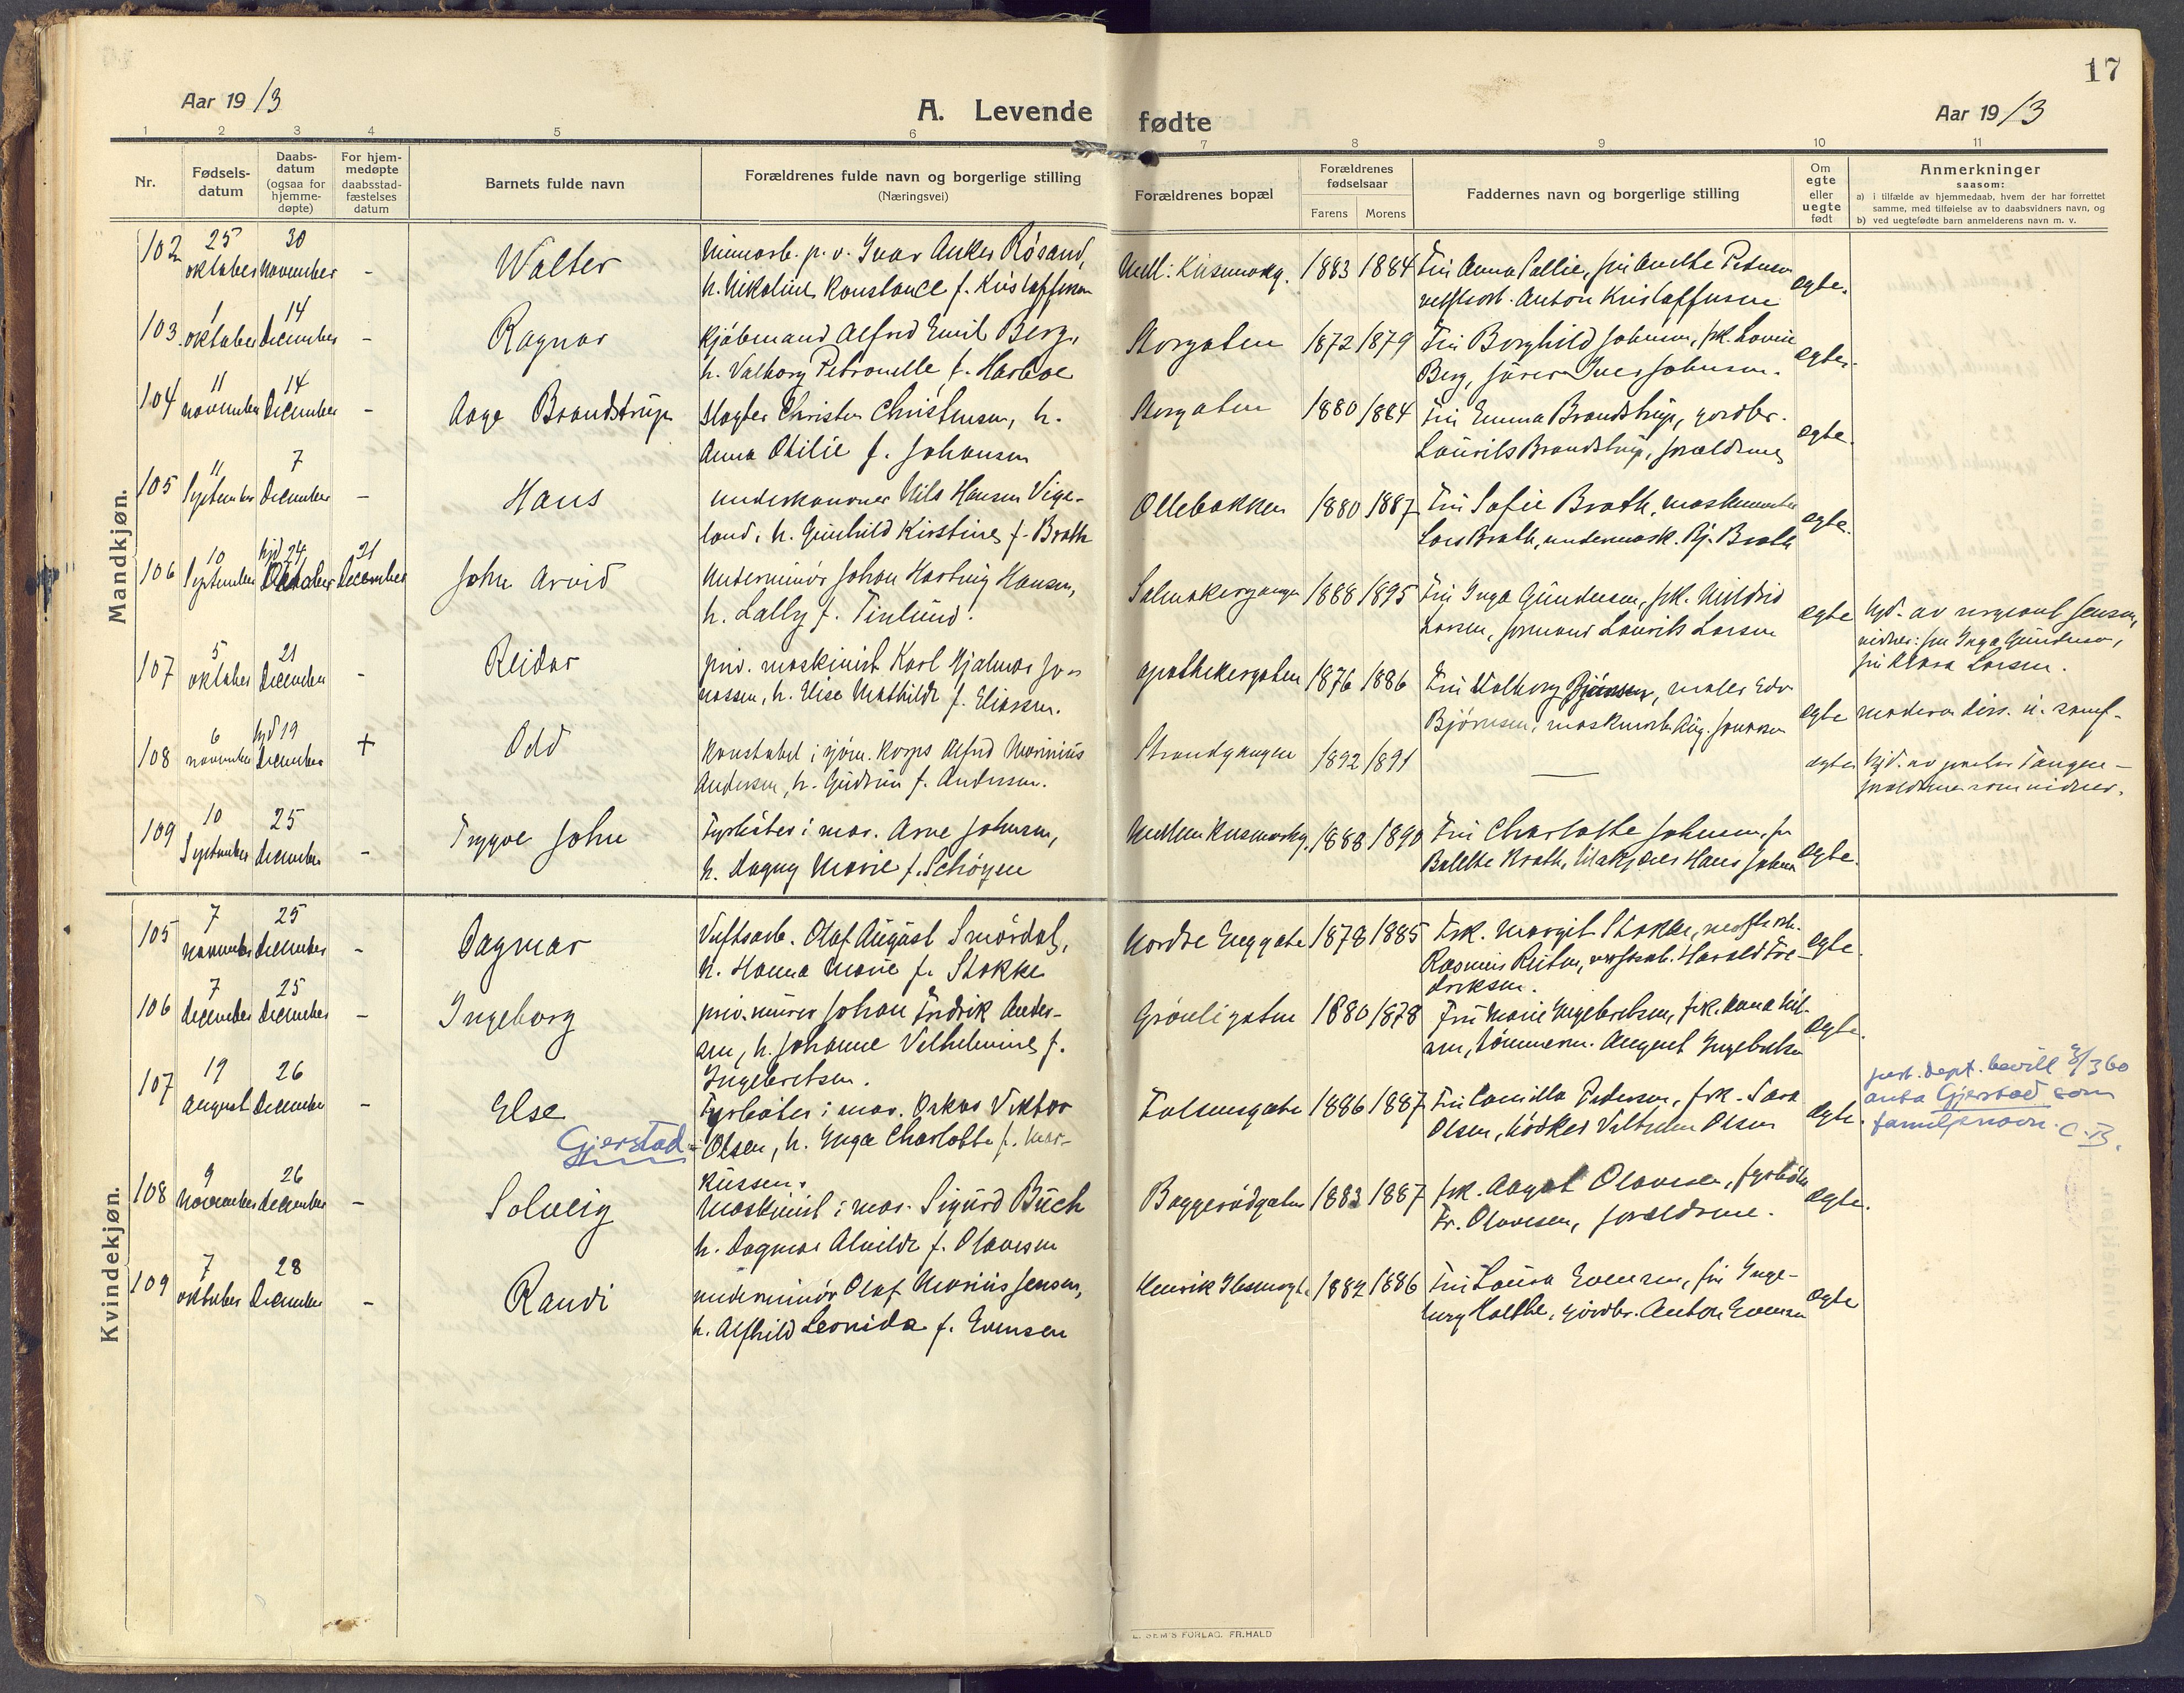 17
Aar 1913
A. Levende fødte
Aar 1913
1 2 3 4 5 6 7 8 9 10 11
Nr.
Fødsels-
datum
Daabs-
datum
(ogsaa for
hjemme-
døpte)
For hjem-
medøpte
daabsstad-
fæstelses
datum
Barnets fulde navn
Forældrenes fulde navn og borgerlige stilling
(Næringsvei)
Forældrenes bopæl
Forældrenes
fødselsaar
Farens Morens
Faddernes navn og borgerlige stilling
Om
egte
eller
uegte
født
Anmerkninger
saasom:
a) i tilfælde av hjemmedaab, hvem der har forrettet
samme, med tilføielse av to daabsvidners navn, og
b) ved uegtefødte barn anmelderens navn m. v.
Mandkjøn.
102 25 oktober 30 november -
Walter
Minearb. p. v. Ivar Anker Røsand,
h. Nikoline Konstance f. Kristoffersen
1883 1884
Fru Anna Pallie, fru Anethe Petersen
verftsarb. Anton Kristoffersen
egte.
103. 1 oktober 14 december -
Ragnar
Kjøbmand Alfred Emil Berg,
h. Valborg Petronelle f. Harboe
Storgaten 1872 1879
Fru Borghild Johnsen, frk. Lovise
Berg, fører Iver Johnsen.
egte.
104 11 november 14 December -
Aage Brandstrup
Slagter Christen Christensen, h.
Anna Otilie f. Johansen
Storgaten 1880 1884
Fru Emma Brandstrup, gordbr.
Laurits Brandstrup, forældrene
egte.
105 11 September 7 December -
Hans
underkanoner Nils Hansen Vige-
land, h. Gunhild Kirstine f. Brath
Ollebakken 1880 1887
Fru Sofie Brath,
Lars Brath, undermask. Bj. Brath
egte.
106 10 September hjd 24 Oktober 21 December
John Arvid
Underminør Johan Hartvig Hansen,
h. Lally f. Tinlund.
1888 1895
Fru Inga Gundersen, frk. Mildrid
Larsen, formand Laurits Larsen
egte
hjd. av sergeant Jensen,
vidner: fru Inga Gundersen,
fru Klara Larsen.
107 5 oktober 21 December -
Reidar
priv. maskinist Karl Hjalmar Jo-
nassen, h. Elise Mathilde f. Eliassen.
Apothekergaten 1876 1886
Fru Valborg Bjørnsen, maler Edv.
Bjørnsen, maskinarb. Aug. Jonassen
egte
moderen diss. u. samf-
108 6 november hjd 19 December +
Odd
Konstabel i sjøm. korps Alfred Marinius
Andersen, h. Gudrun f. Andersen.
Strandgangen 1892 1891
—
egte
Hjd. av prester Tangen -
forældrene som vidner.
109 10 September 25 December -
Trygve John
Fyrbøter i mar. Arne Johnsen,
h. Dagny Marie f. Schøyen
1888 1890
Fru Charlotte Johnsen, fru
Bolette Krath, Hans Johnsen
egte.
Kvindekjøn.
105 7 november 25 december -
Dagmar
Verftsarb. Olaf August Smørdal,
h. Hanna Marie f. Stokke
Nordre Enggate 1878 1885
Frk. Margit Stokke, verftsarb.
Rasmus verftsarb. Harald Fre-
driksen.
egte.
106 7 December 25 December -
Ingeborg
priv. murer Johan Fredrik Ander-
sen, h. Johanne Vilhelmine f.
Ingebretsen.
Grønligaten 1880 1878
Fru Marie Ingebretsen, frk. Anna Nil-
sen, tømmerm. August Ingebretsen
egte.
107 19 August 26 December -
Else
Gjerstad
Fyrbøter i mar. Oskar Viktor
Olsen, h. Inga Charlotte f. Mar-
kussen.
1886 1887
Fru Camilla Pedersen, frk. Sara
Olsen, bødker Vilhelm Olsen
egte.
just. dept. bevill 8/3 60
anta Gjerstad som
familienavn. C. B.
108 9 November 26 december -
Solveig
Maskinist i mar. Sigurd Buch
h. Dagmar Alvilde f. Olavesen
Baggerødgaten 1883 1887
frk. Aagot Olavesen, fyrbøter
Fr. Olavesen, forældrene.
egte.
109 7 oktober 28 December -
Randi
underminør Olaf Marius Jensen,
h. Alfhild Leonida f. Evensen
Henrik Ibsensgt. 1882 1886
Fru Laura Evensen, fru Inge-
borg Holthe, gordbr. Anton Evensen
egte
E. SEM'S FORLAG. FR.HALD